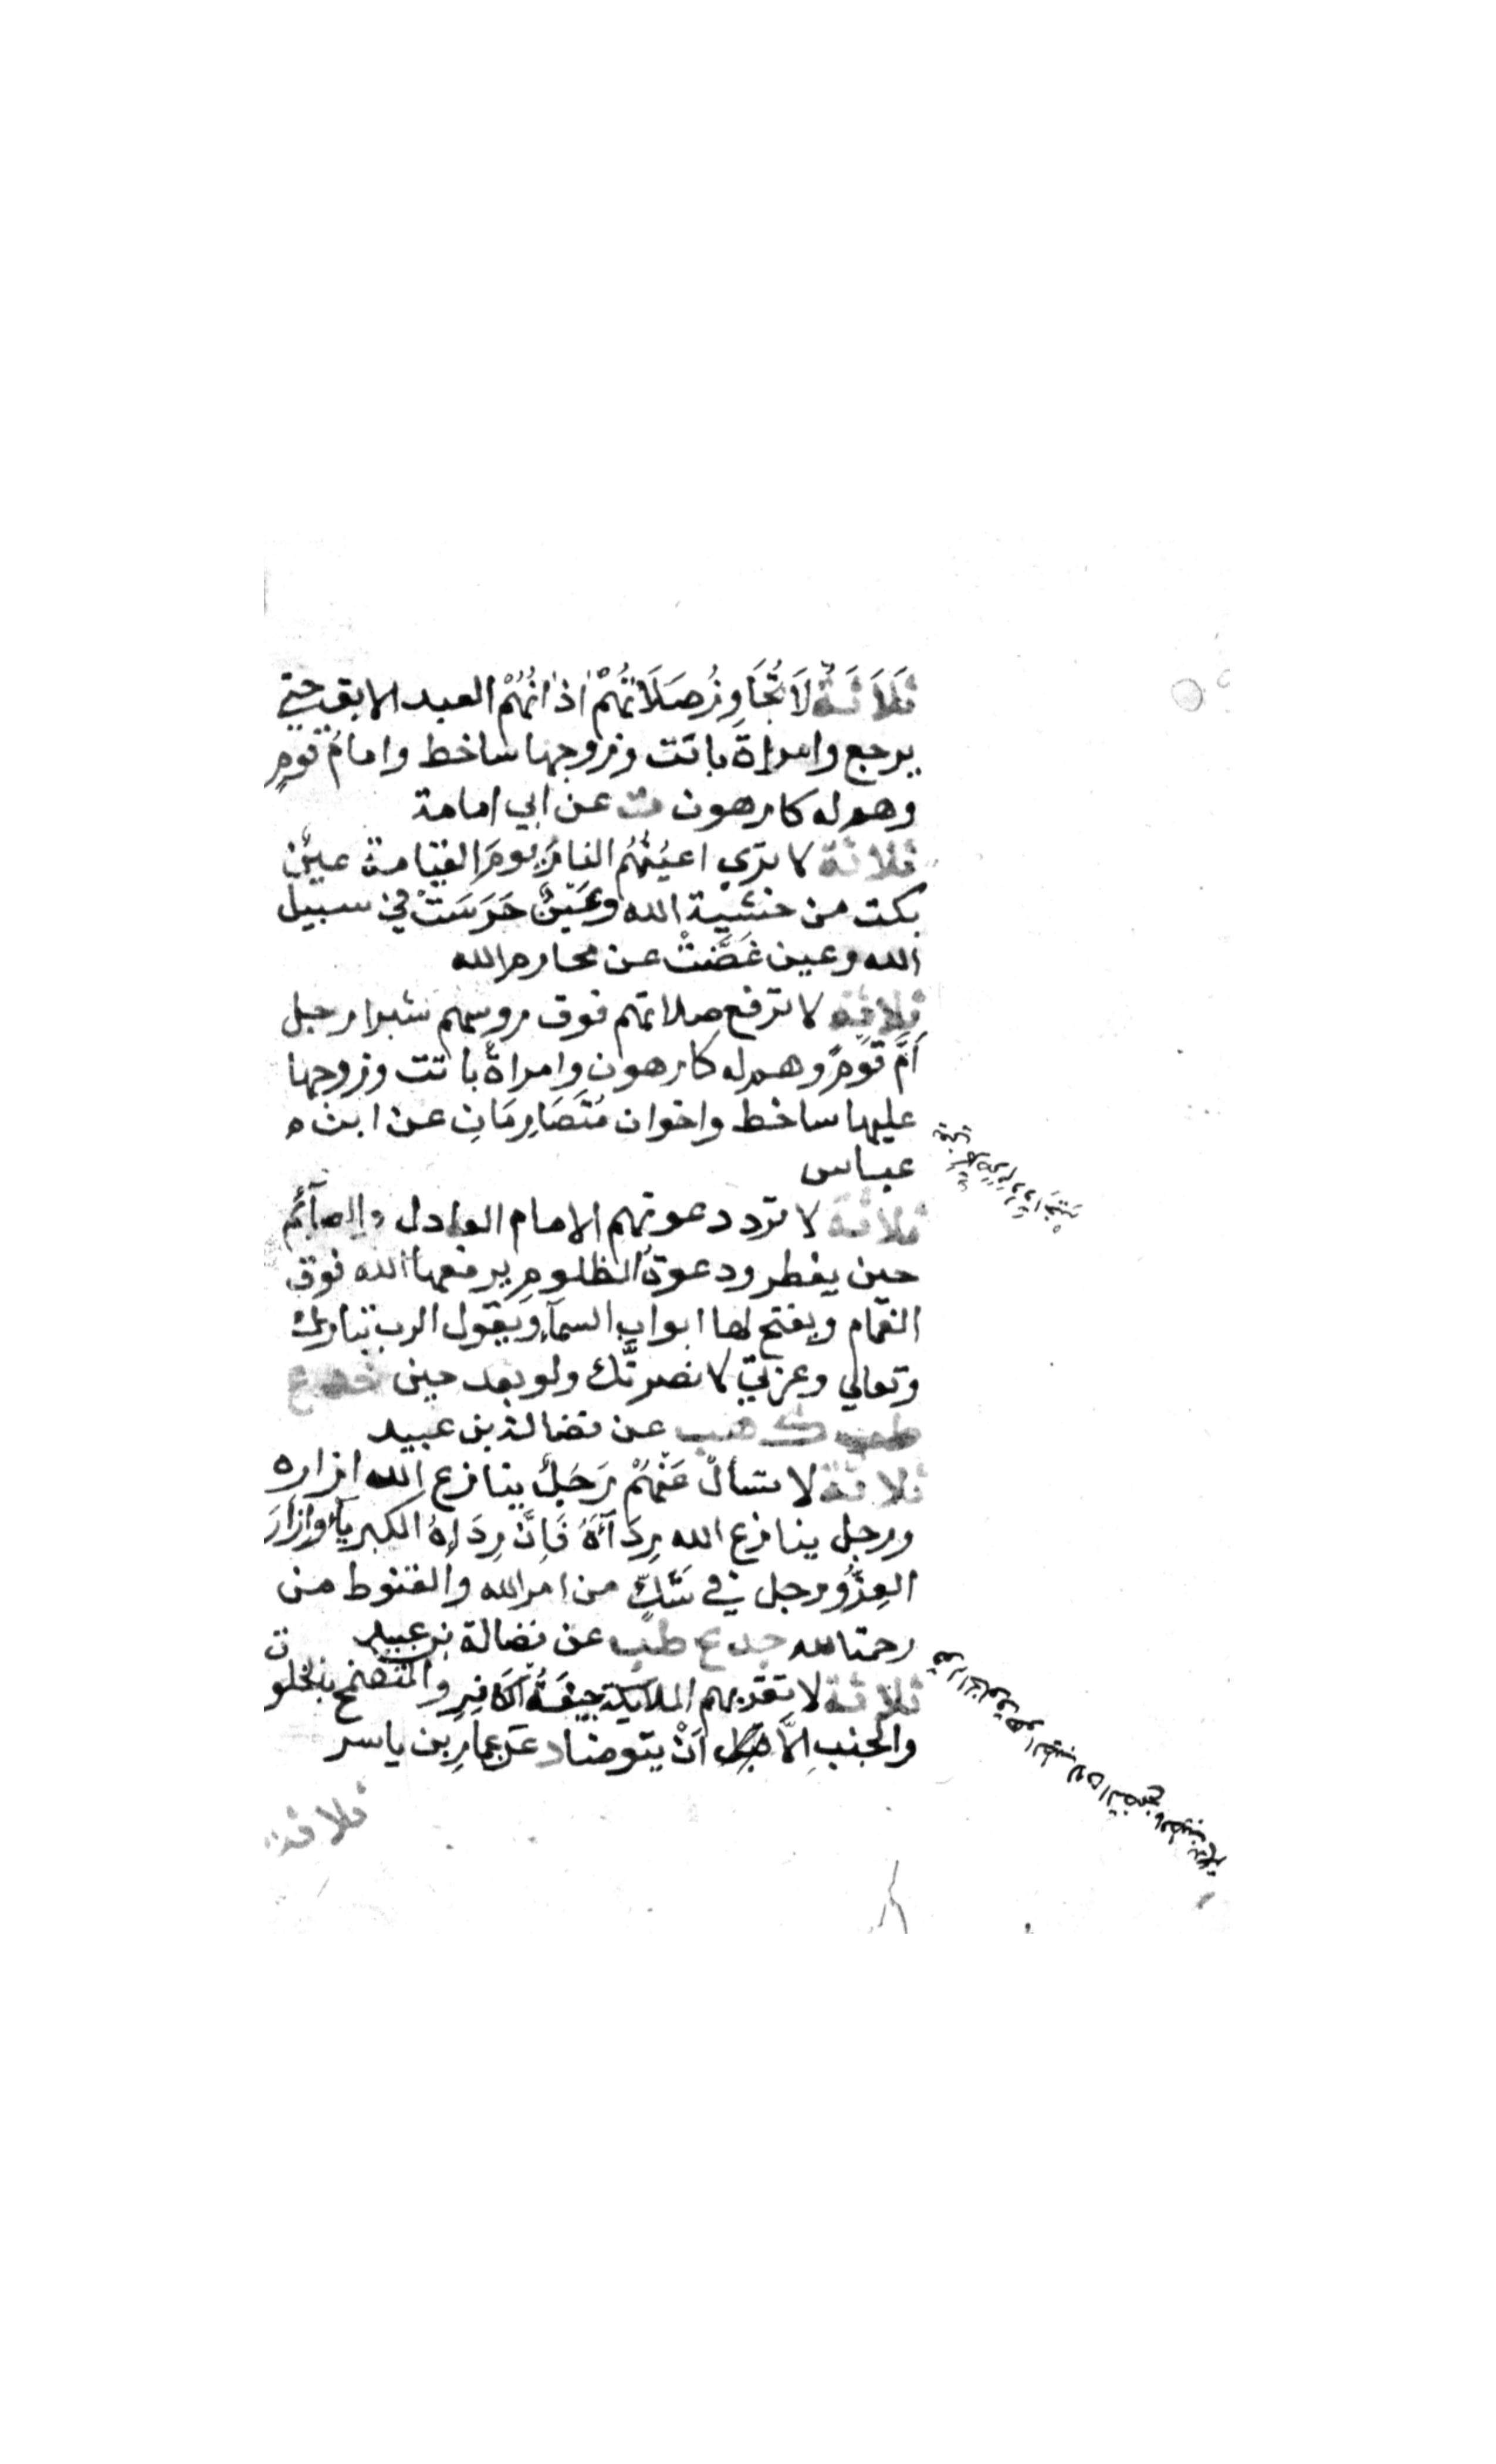 ثَلَاثَةٌ لَا تُجَاوِزُ صَلَاتُهُمْ اٰذَانَهُمْ العبد الابق حتي
يرجع وامراةٌ باتت وزوجها ساخط وامامُ قومٍ
وهم له كارهون ت عن ابي امامة
ثلاثة لا تري اعيُنُهُم النارَ يومَ القيامة عينٌ
بكت من خشية الله وعَيْنٌ حَرَسَتْ في سبيل
الله وعين غَضَّتْ عن محارم الله
ثلاثة لا ترفع صلاتهم فوق روسهم شبرا رجل
اَمَّ قومًا وهم له كارهون وامراةٌ باتت وزوجها
عليها ساخط واخوان مُتَصَارِمَانِ عن ابن ه
عباس
ثلاثة لا ترد دعوتهم الامام العادل والصآئم
حين يفطر ودعوةُ المظلومِ يرفعها الله فوق
الغمام ويفتح لها ابواب السمآء ويقول الرب تبارك
وتعالي وعزتي لا نصرنَّك ولو بعد حين
طب ك هب عن فضالة بن عبيد
ثلاثة لا تسأل عَنْهُمْ رَجُلٌ ينازع الله ازاره
ورجل ينازع الله رِدَآءَهُ فَاِنَّ رِدَاءهُ الكبريآء وازَارَ
العِزُّ ورجل في شَكٍّ من امر الله والقنوط من
رحمة الله خدع طب عن فضالة بن عبيد
ثلاثة لا تقربهم الملايكة جيفَةُ الكَافِرِ والمتضمخ بالخلوق
والجنب الَّا اَنْ يتوضا د عن عمارِ بن ياسر
ثلاثة